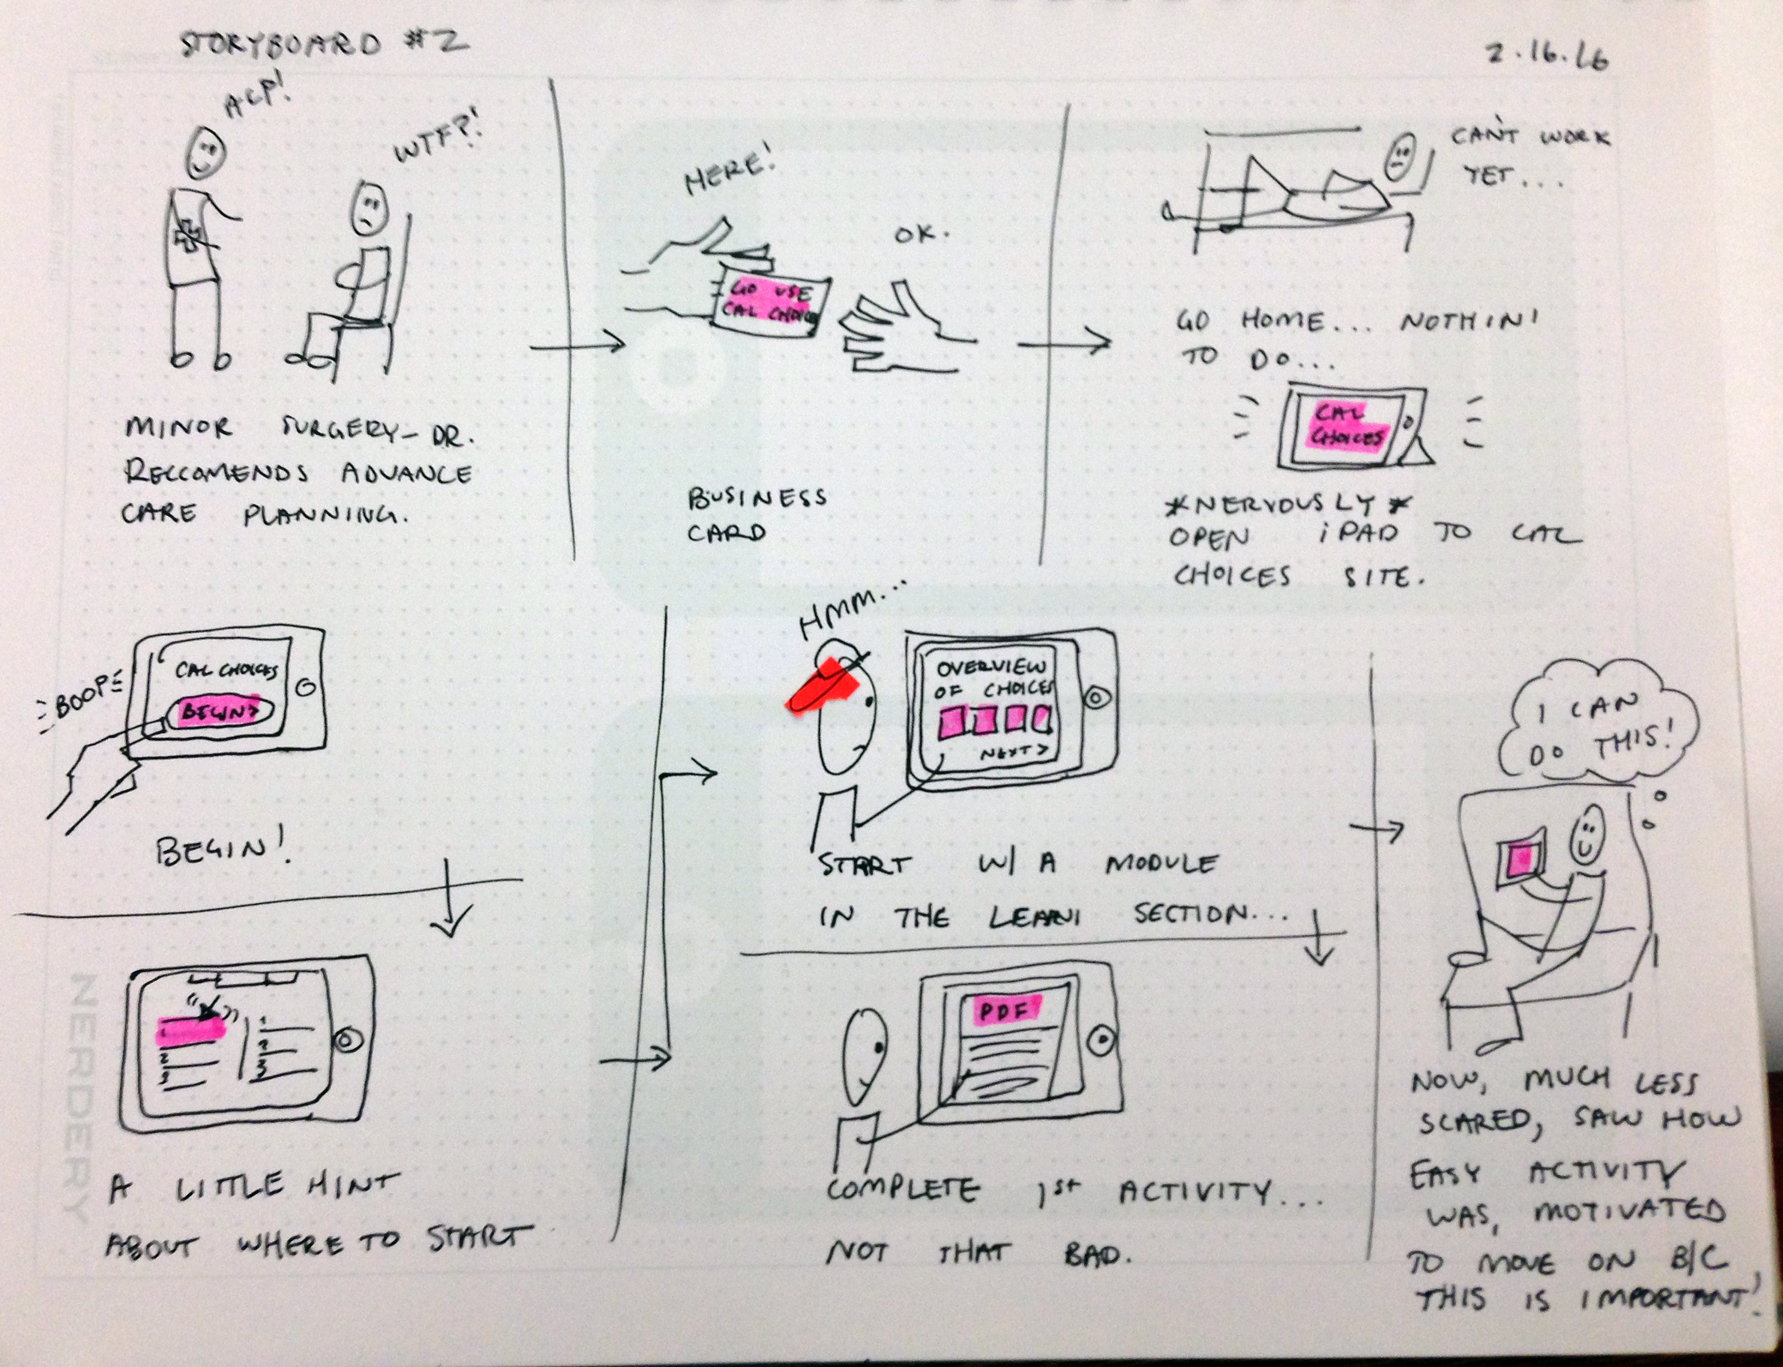 STORYBOARD #2
2.16.16
ACP!
WTF?!
MINOR SURGERY - DR.
RECCOMENDS ADVANCE
CARE PLANNING.
HERE!
OK.
GO USE
CAL CHOICES
BUSINESS
CARD
CAN'T WORK
YET...
GO HOME... NOTHIN'
TO DO...
CAL
CHOICES
*NERVOUSLY*
OPEN iPAD TO CAL
CHOICES SITE.
BOOP
CAL CHOICES
BEGIN >
BEGIN!
A LITTLE HINT
ABOUT WHERE TO START
HMM...
OVERVIEW
OF CHOICES
NEXT >
START W/ A MODULE
IN THE LEARN SECTION...
PDF
COMPLETE 1st ACTIVITY...
NOT THAT BAD.
I CAN
DO THIS!
NOW, MUCH LESS
SCARED, SAW HOW
EASY ACTIVITY
WAS, MOTIVATED
TO MOVE ON B/C
THIS IS IMPORTANT!
NERDERY